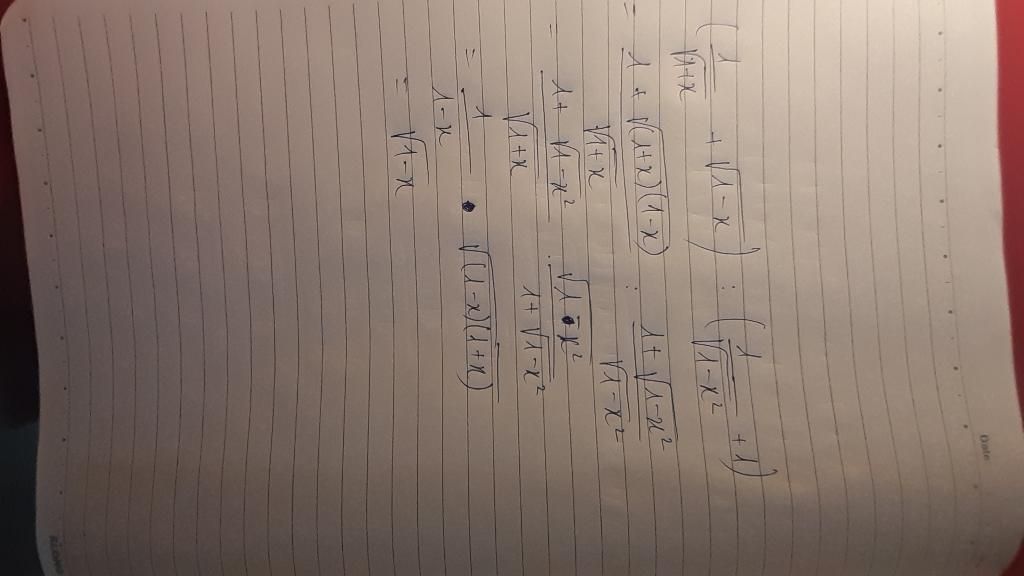 Date
(1/√(1+x) + √(1-x)) : (1/√(1-x²) + 1)
= (1 + √((1+x)(1-x)))/√(1+x) : (1 + √(1-x²))/√(1-x²)
= (1 + √(1-x²))/√(1+x) · √(1-x²)/(1 + √(1-x²))
= 1/(1-x) · √((1-x)(1+x))
= √(1-x)